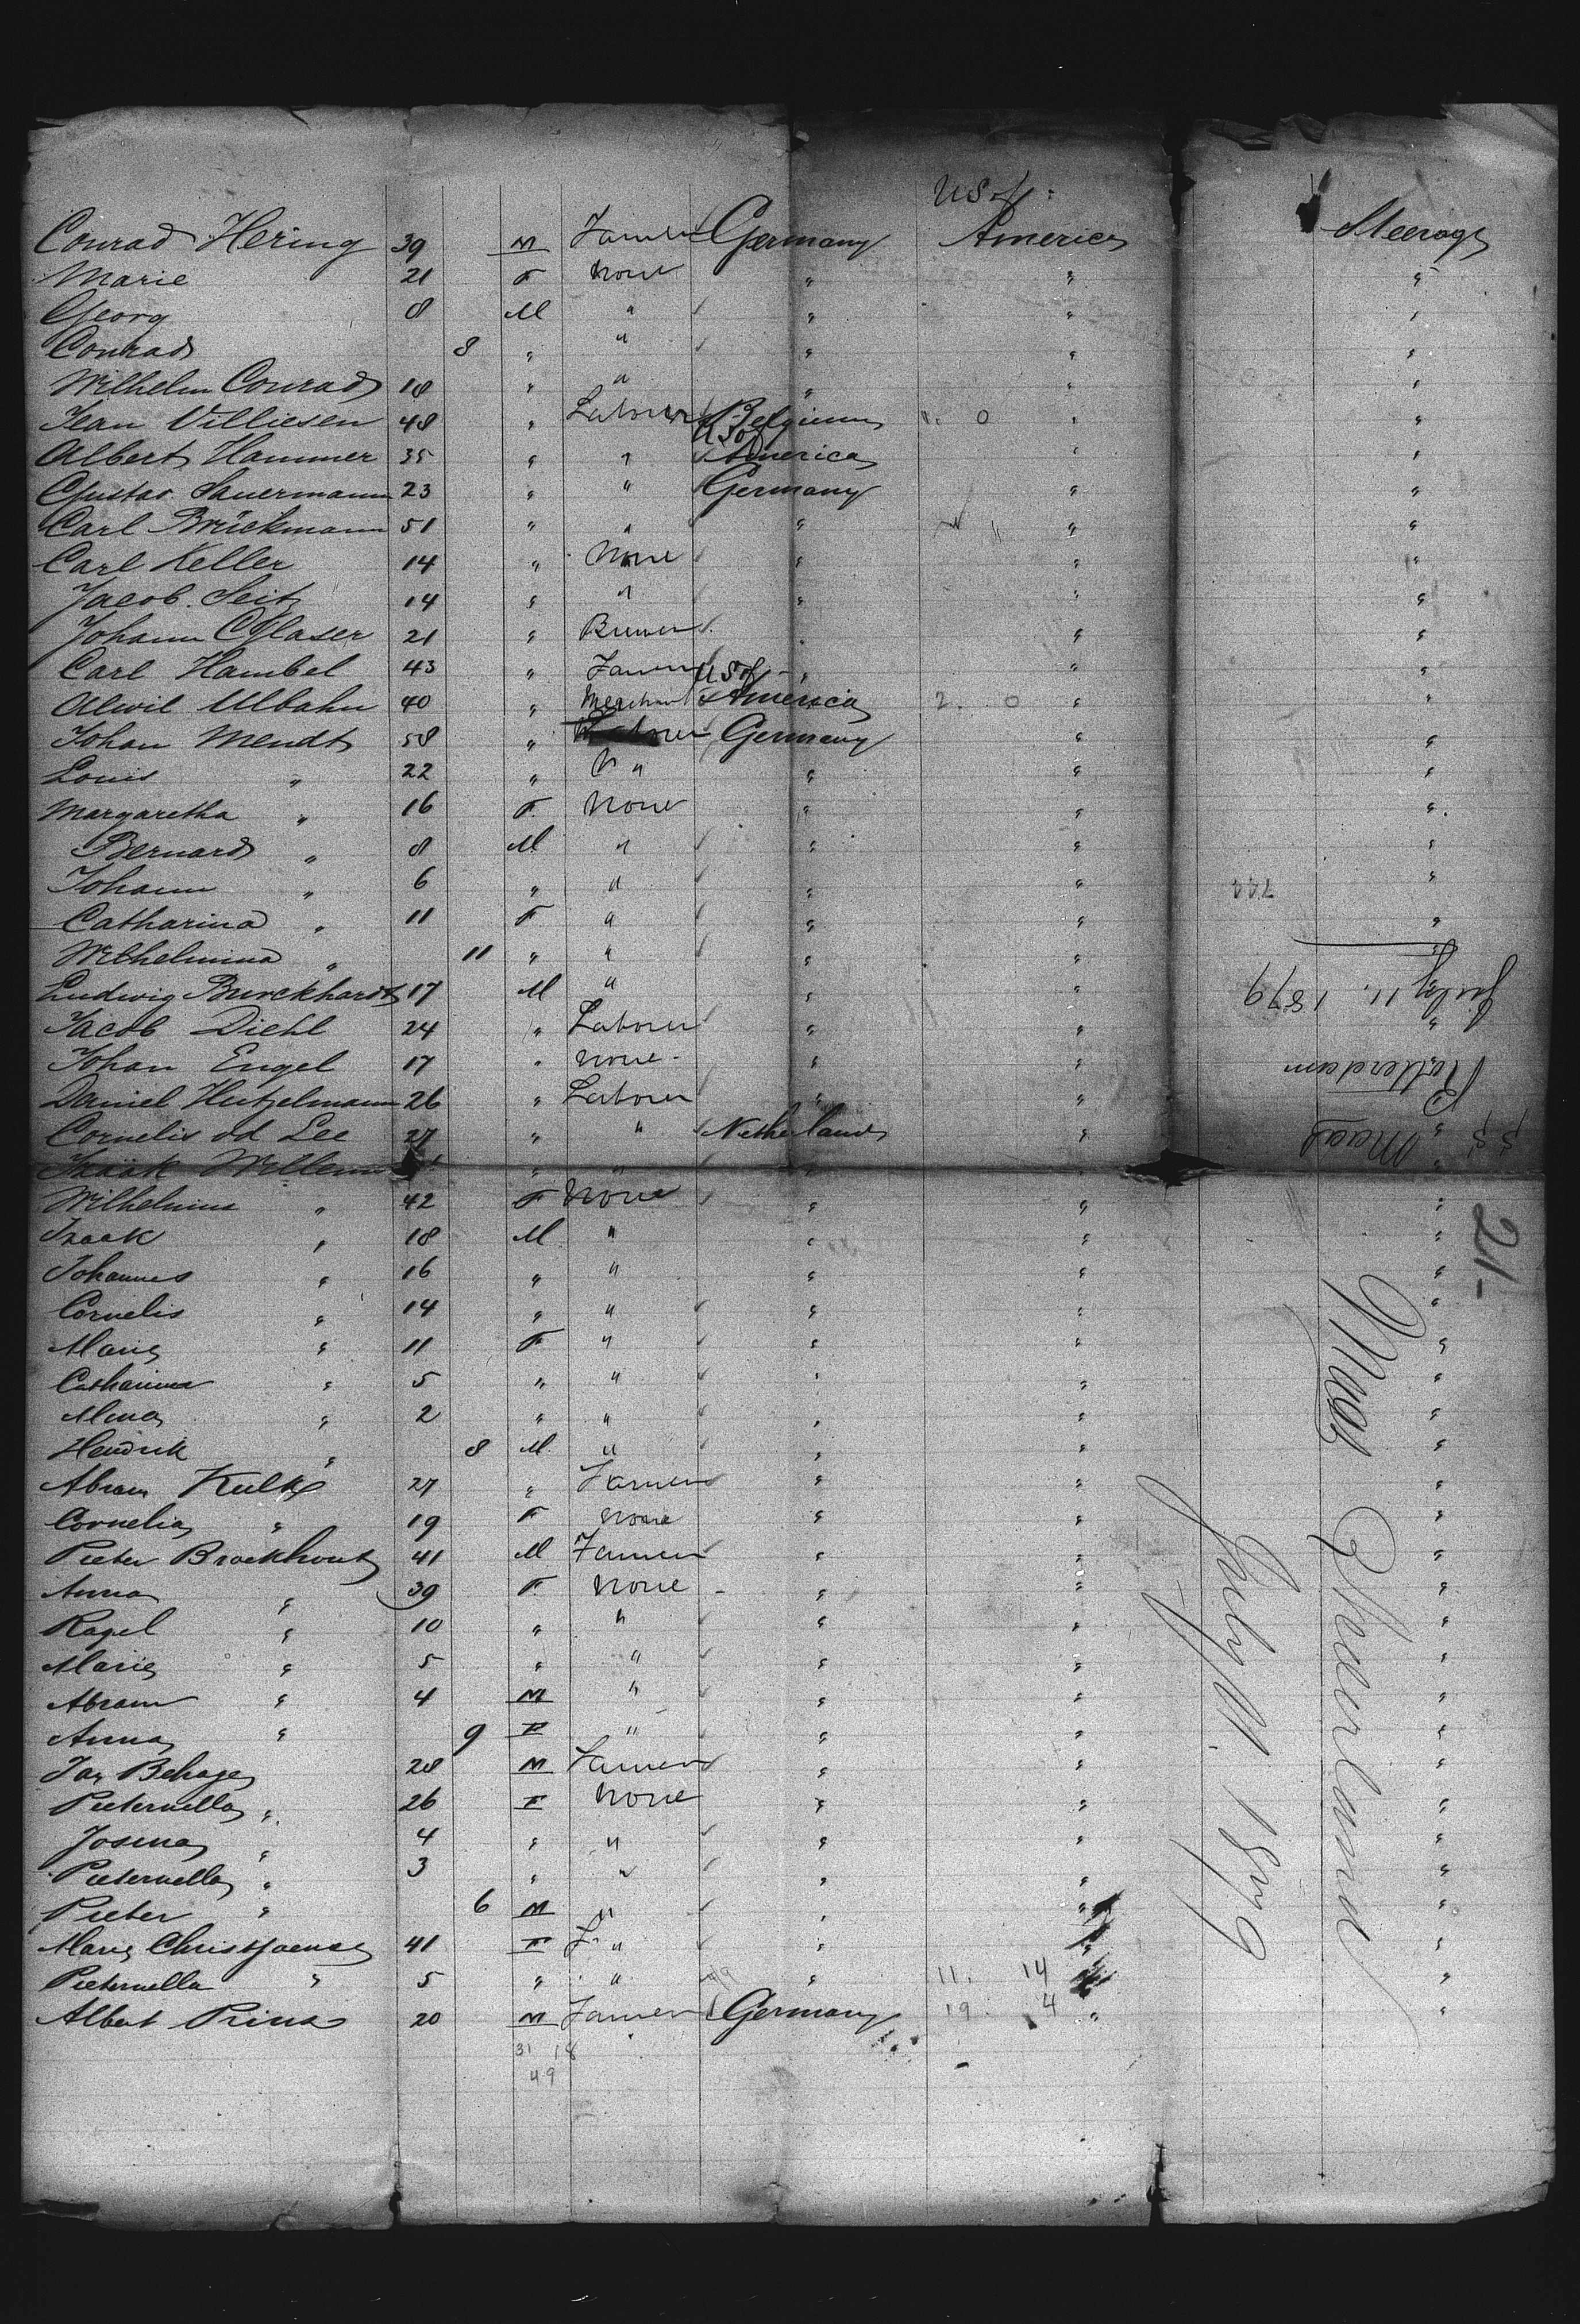 US of
Conrad Hering 39 M Farmer Germany America Steerage
Marie 21 F None " " "
Georg 8 M " " " "
Conrad 8 " " " " "
Wilhelm Conrad 18 " " " " "
Jean Villiesen 48 " Laborer Belgium 1. 0 " "
Albert Hammer 35 " " US of America " "
Gustav Sauermann 23 " " Germany " "
Carl Brückmann 51 " " " " "
Carl Keller 14 " None " " "
Jacob Seitz 14 " " " " "
Johann Glaser 21 " Brewer " " "
Carl Hambel 43 " Farmer " " "
Alwil Ulbahn 40 " Merchant US of America 2. 0 " "
Johan Mendt 58 " Germany " "
Louis " 22 " " " " "
Margaretha " 16 F. None " " "
Bernard " 8 M. " " " "
Johann " 6 " " " " "
744
Catharina " 11 F " " " "
Wilhelmina " 11 " " " " "
Ludwig Burckhardt 17 M " " " "
July 11. 1879
Jacob Diehl 24 " Laborer " " "
Johan Engel 17 " None " " "
Rotterdam
Daniel Hutzelmann 26 " Laborer " " "
Cornelis vd Lee 27 " " Netherlands " "
SS Maas
Isaäk Willem " " " " "
Wilhelmina " 42 F None " " "
Isaak " 18 M " " " "
21-
Johannes " 16 " " " " "
Cornelis " 14 " " " " "
Maria " 11 F " " " "
Catharina " 5 " " " " "
Mina " 2 " " " " "
Hendrik " 8 M. " " " "
Maas
Abram Kulk 27 " Farmer " " "
Cornelia " 19 F None " " "
Pieter Broekhout 41 M Farmer " " "
Anna " 39 F. None " " "
Ragel " 10 " " " " "
Maria " 5 " " " " "
Abram " 4 M " " " "
Anna " 9 F " " " "
July 11. 1879
Jan Behage 28 M Farmer " " "
Pieternella " 26 F None " " "
Josina " 4 " " " " "
Pieternella " 3 " " " " "
Pieter " 6 M " " " "
Maria Christjaense 41 F " " " "
Pieternella " 5 " " " 11. 14 " "
Albert Prins 20 M Farmer Germany 19. 4 " "
31 18
49